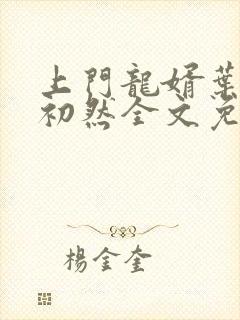 上門龍婿葉
初然全文免
楊金奎